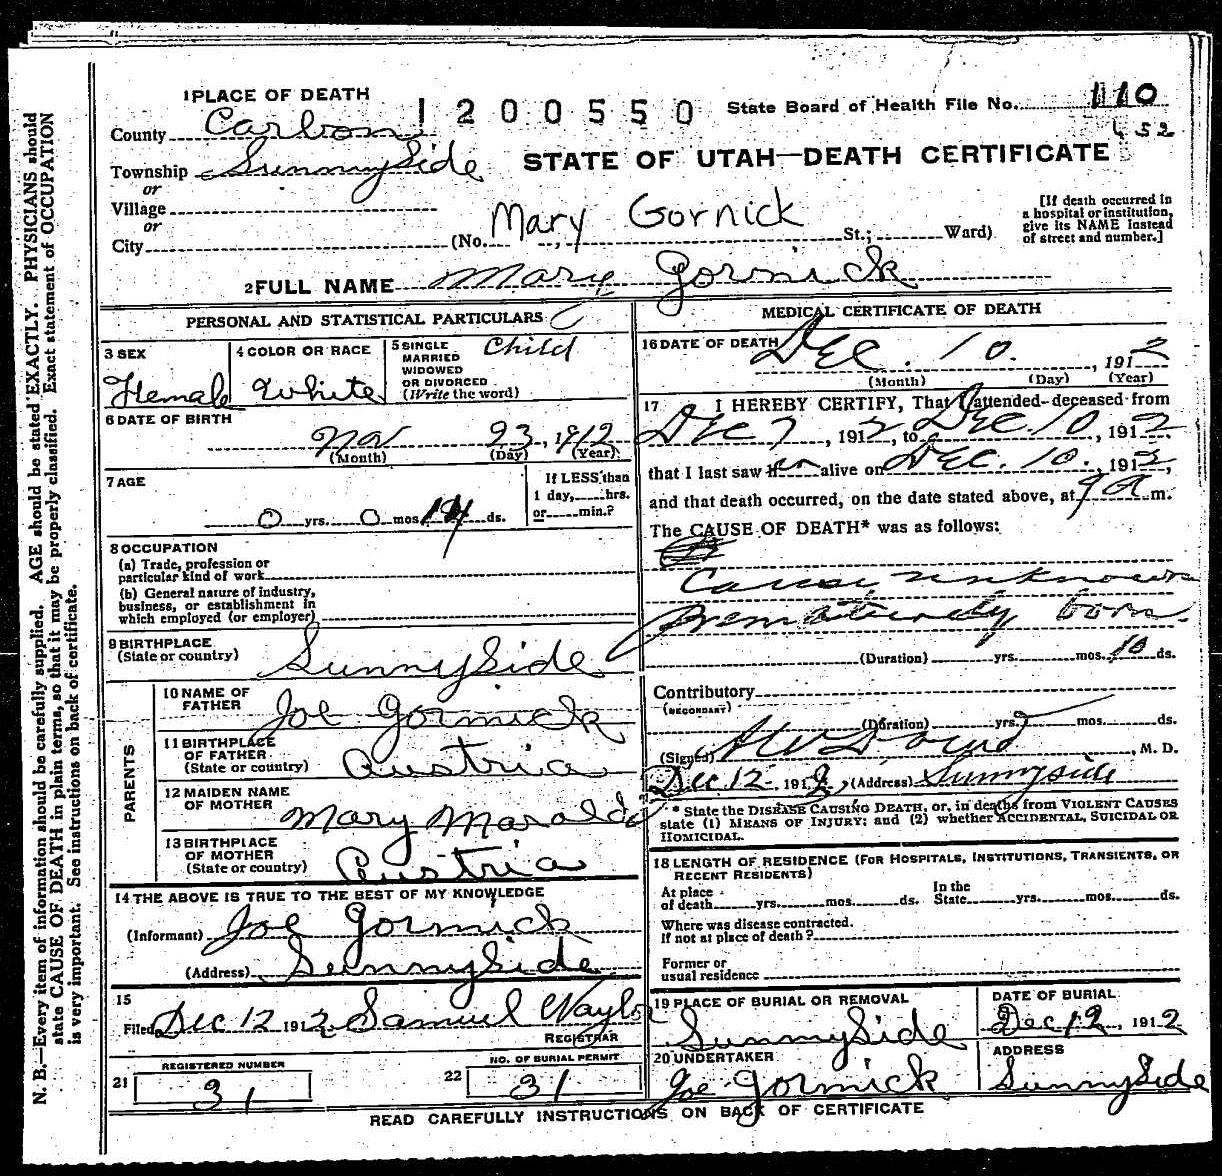 1 PLACE OF DEATH
1200550
State Board of Health File No. 110
452
County Carbon
Township Sunnyside
STATE OF UTAH—DEATH CERTIFICATE
or
Village
or
City (No. Mary Gornick St.; Ward)
[If death occurred in a hospital or institution, give its NAME instead of street and number.]
2 FULL NAME Mary Gornick
PERSONAL AND STATISTICAL PARTICULARS
3 SEX
Female
4 COLOR OR RACE
White
5 SINGLE MARRIED WIDOWED OR DIVORCED (Write the word)
Child
6 DATE OF BIRTH
Nov 23, 1912
(Month) (Day) (Year)
7 AGE
0 yrs. 0 mos. ds.
If LESS than 1 day, hrs. or min.?
8 OCCUPATION
(a) Trade, profession or particular kind of work
(b) General nature of industry, business, or establishment in which employed (or employer)
9 BIRTHPLACE
(State or country) Sunnyside
PARENTS
10 NAME OF FATHER Joe Gornick
11 BIRTHPLACE OF FATHER (State or country) Austria
12 MAIDEN NAME OF MOTHER Mary
13 BIRTHPLACE OF MOTHER (State or country) Austria
14 THE ABOVE IS TRUE TO THE BEST OF MY KNOWLEDGE
(Informant) Joe Gornick
(Address) Sunnyside
15
Filed Dec 12 1912 Samuel Naylor
REGISTRAR
REGISTERED NUMBER
21 31
NO. OF BURIAL PERMIT
22 31
MEDICAL CERTIFICATE OF DEATH
16 DATE OF DEATH
Dec. 10., 1912
(Month) (Day) (Year)
17 I HEREBY CERTIFY, That I attended deceased from
Dec 7, 1912, to Dec. 10, 1912
that I last saw her alive on Dec. 10., 1912,
and that death occurred, on the date stated above, at 9 a m.
The CAUSE OF DEATH* was as follows:
Cause unknown
Prematurely born.
(Duration) yrs. mos. 10 ds.
Contributory
(SECONDARY)
(Duration) yrs. mos. ds.
(Signed) , M. D.
Dec. 12 1912, (Address) Sunnyside
* State the DISEASE CAUSING DEATH, or, in deaths from VIOLENT CAUSES state (1) MEANS OF INJURY; and (2) whether ACCIDENTAL, SUICIDAL OR HOMICIDAL.
18 LENGTH OF RESIDENCE (FOR HOSPITALS, INSTITUTIONS, TRANSIENTS, OR RECENT RESIDENTS)
At place of death yrs. mos. ds. In the State yrs. mos. ds.
Where was disease contracted. If not at place of death?
Former or usual residence
19 PLACE OF BURIAL OR REMOVAL
Sunnyside
DATE OF BURIAL
Dec 12, 1912
20 UNDERTAKER
Joe Gornick
ADDRESS
Sunnyside
READ CAREFULLY INSTRUCTIONS ON BACK OF CERTIFICATE
N. B.—Every item of information should be carefully supplied. AGE should be stated EXACTLY. PHYSICIANS should
state CAUSE OF DEATH in plain terms, so that it may be properly classified. Exact statement of OCCUPATION
is very important. See instructions on back of certificate.